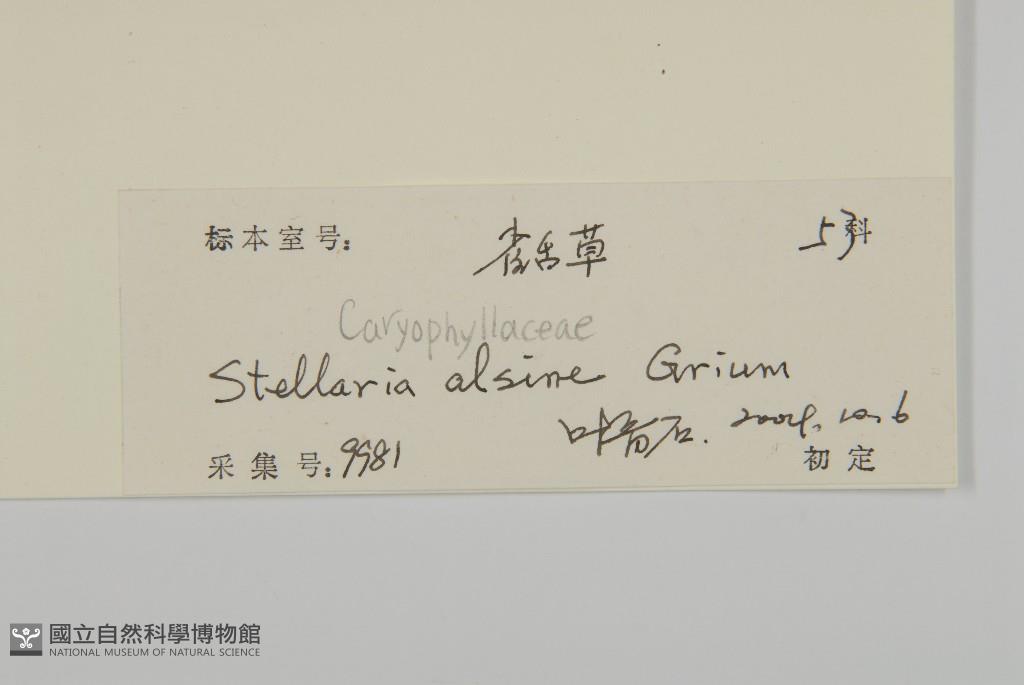 标本室号: 雀舌草 53科
Caryophyllaceae
Stellaria alsine Grium
2004. 10. 6
采集号: 9981 初定
國立自然科學博物館
NATIONAL MUSEUM OF NATURAL SCIENCE